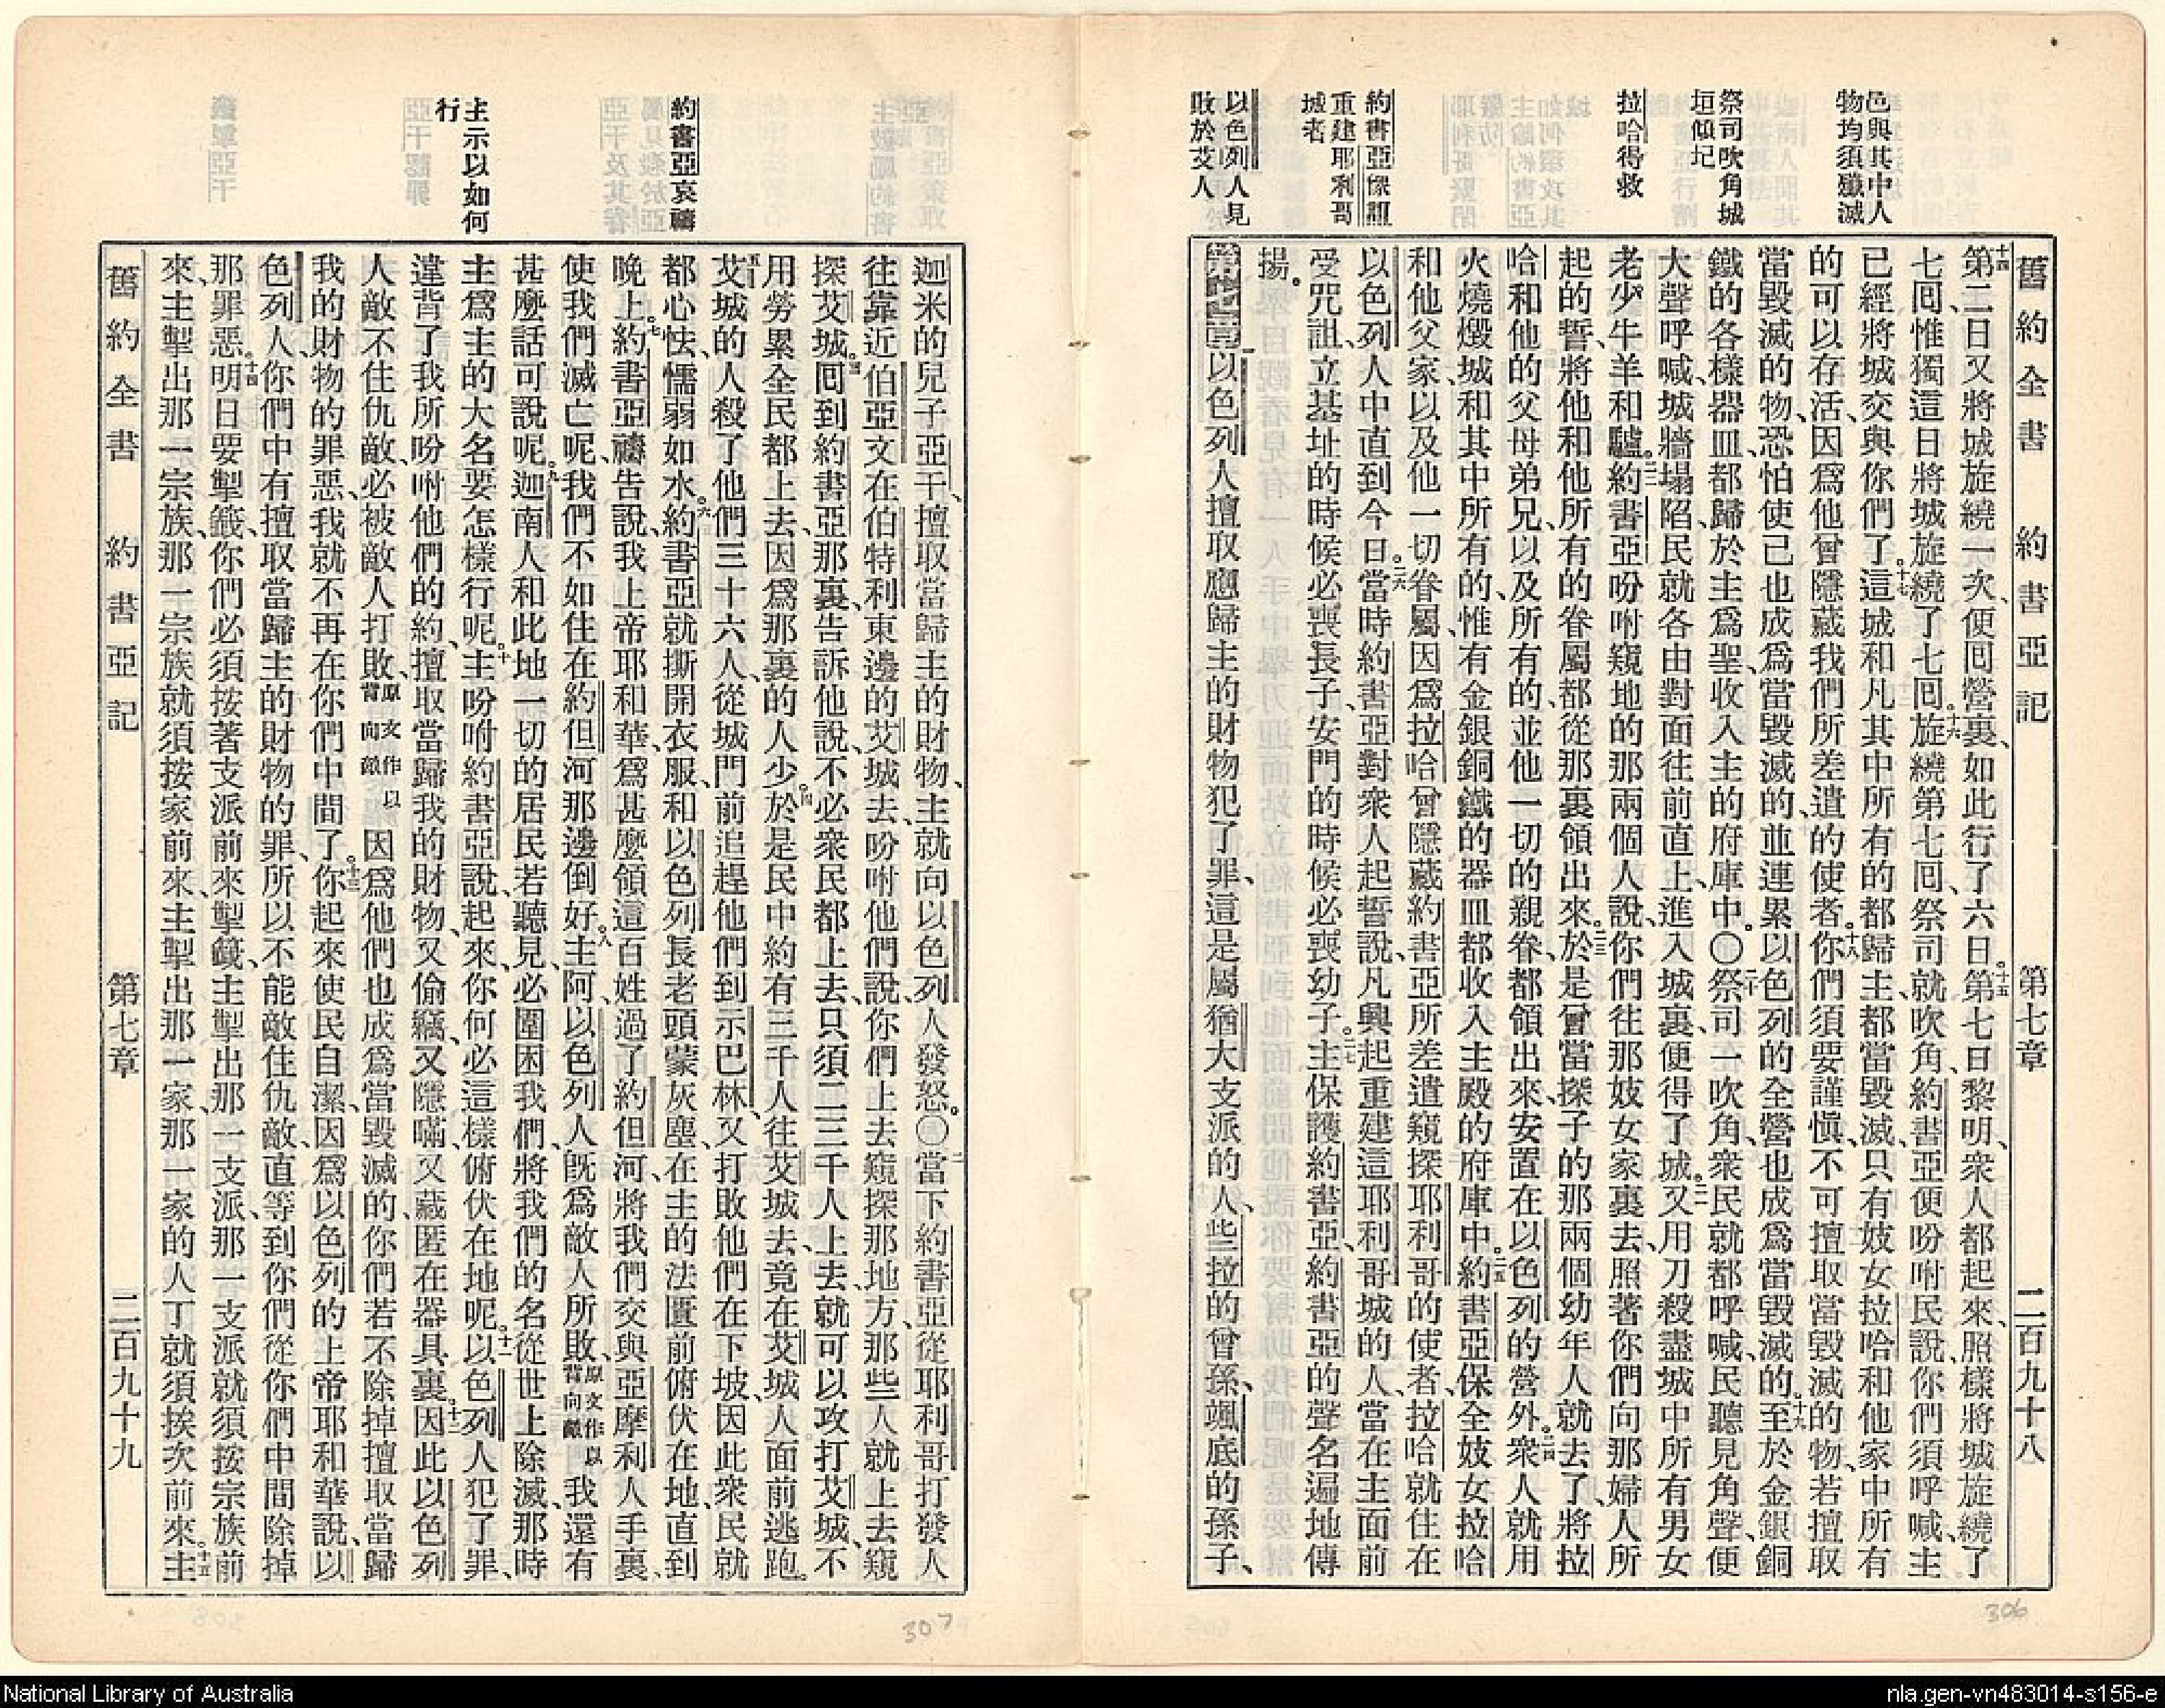 邑與其中人
物均須殲滅
祭司吹角城
垣傾圮
拉哈得救
約書亞懲詛
重建耶利哥
城者
以色列人見
敗於艾人
舊約全書 約書亞記 第七章 二百九十八
十四第二日又將城旋繞一次、便回營裏、如此行了六日。十五第七日黎明、衆人都起來、照樣將城旋繞了
七回、惟獨這日將城旋繞了七回。十六旋繞第七回、祭司就吹角、約書亞便吩咐民說、你們須呼喊、主
已經將城交與你們了。十七這城和凡其中所有的都歸主、都當毀滅、只有妓女拉哈和他家中所有
的可以存活、因爲他曾隱藏我們所差遣的使者。十八你們須要謹愼、不可擅取當毀滅的物、若擅取
當毀滅的物、恐怕使己也成爲當毀滅的、並連累以色列的全營也成爲當毀滅的。十九至於金銀銅
鐵的各樣器皿、都歸於主爲聖、收入主的府庫中。〇二十祭司一吹角、衆民就都呼喊、民聽見角聲、便
大聲呼喊、城牆塌陷、民就各由對面往前直上、進入城裏、便得了城。二一又用刀殺盡城中所有男女
老少牛羊和驢。二二約書亞吩咐窺地的那兩個人說、你們往那妓女家裏去、照著你們向那婦人所
起的誓、將他和他所有的眷屬都從那裏領出來。二三於是曾當探子的那兩個幼年人就去了、將拉
哈和他的父母弟兄、以及所有的、並他一切的親眷、都領出來、安置在以色列的營外。二四衆人就用
火燒燬城和其中所有的、惟有金銀銅鐵的器皿、都收入主殿的府庫中。二五約書亞保全妓女拉哈
和他父家、以及他一切眷屬、因爲拉哈曾隱藏約書亞所差遣窺探耶利哥的使者、拉哈就住在
以色列人中直到今日。二六當時約書亞對衆人起誓說、凡興起重建這耶利哥城的人、當在主面前
受咒詛、立基址的時候必喪長子、安門的時候必喪幼子。二七主保護約書亞、約書亞的聲名遍地傳
揚。
第七章一以色列人擅取應歸主的財物犯了罪、這是屬猶大支派的人、些拉的曾孫、颯底的孫子、
主示以如何
行
約書亞哀禱
迦米的兒子亞干、擅取當歸主的財物、主就向以色列人發怒。〇二當下約書亞從耶利哥打發人
往靠近伯亞文在伯特利東邊的艾城去、吩咐他們說、你們上去窺探那地方、那些人就上去窺
探艾城。三回到約書亞那裏、告訴他說、不必衆民都上去、只須二三千人上去就可以攻打艾城、不
用勞累全民都上去、因爲那裏的人少。四於是民中約有三千人往艾城去、竟在艾城人面前逃跑。
五艾城的人殺了他們三十六人、從城門前追趕他們到示巴林、又打敗他們在下坡、因此衆民就
都心怯、懦弱如水。六約書亞就撕開衣服、和以色列長老頭蒙灰塵、在主的法匱前俯伏在地、直到
晚上。七約書亞禱告說、我上帝耶和華、爲甚麼領這百姓過了約但河、將我們交與亞摩利人手裏、
使我們滅亡呢、我們不如住在約但河那邊倒好。八主阿、以色列人旣爲敵人所敗、原文作以背向敵我還有
甚麼話可說呢。九迦南人和此地一切的居民若聽見、必圍困我們、將我們的名從世上除滅、那時
主爲主的大名要怎樣行呢。十主吩咐約書亞說、起來、你何必這樣俯伏在地呢。十一以色列人犯了罪、
違背了我所吩咐他們的約、擅取當歸我的財物、又偷竊、又隱瞞、又藏匿在器具裏。十二因此以色列
人敵不住仇敵、必被敵人打敗、原文作以背向敵因爲他們也成爲當毀滅的、你們若不除掉擅取當歸
我的財物的罪惡、我就不再在你們中間了。十三你起來使民自潔、因爲以色列的上帝耶和華說、以
色列人、你們中有擅取當歸主的財物的罪、所以不能敵住仇敵、直等到你們從你們中間除掉
那罪惡。十四明日要掣籤、你們必須按著支派前來掣籤、主掣出那一支派、那一支派就須按宗族前
來、主掣出那一宗族、那一宗族就須按家前來、主掣出那一家、那一家的人丁就須挨次前來。十五主
舊約全書 約書亞記 第七章 二百九十九
306
307
National Library of Australia
nla.gen-vn483014-s156-e